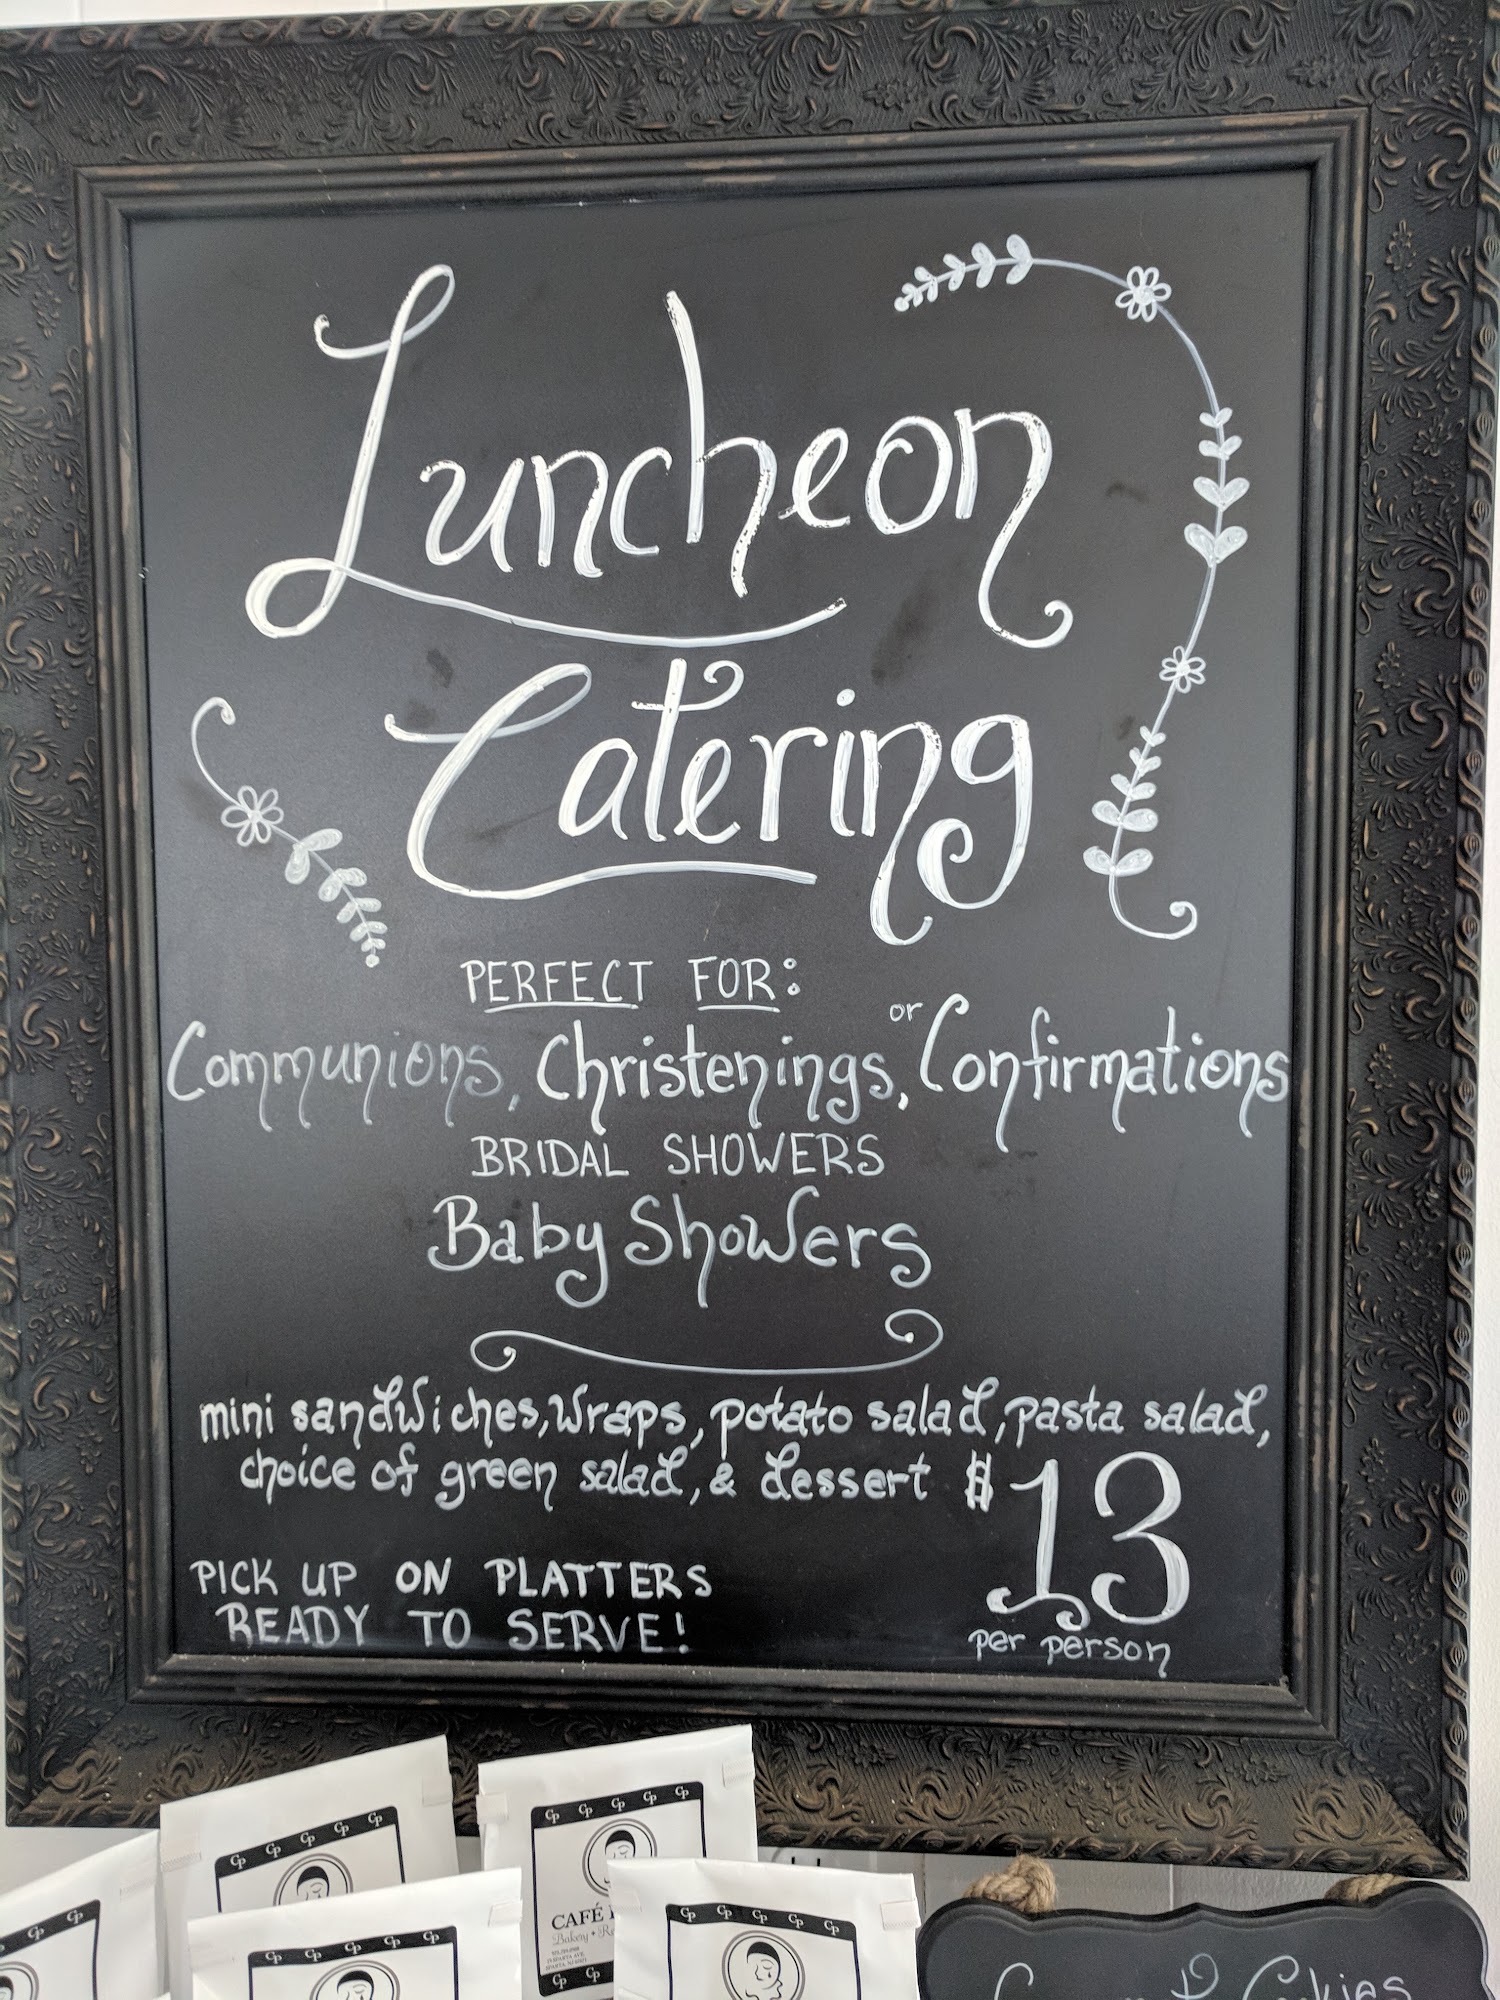 Luncheon
Catering
PERFECT FOR:
Communions, Christenings, or Confirmations
BRIDAL SHOWERS
Baby Showers
mini sandwiches, wraps, potato salad, pasta salad,
choice of green salad, & dessert $13
per person
PICK UP ON PLATTERS
READY TO SERVE!
CP CP CP CP CP
CP CP CP CP CP
CAFÉ
Bakery
CP CP
CP CP CP CP CP
CP CP CP CP CP
CP CP
Cookies